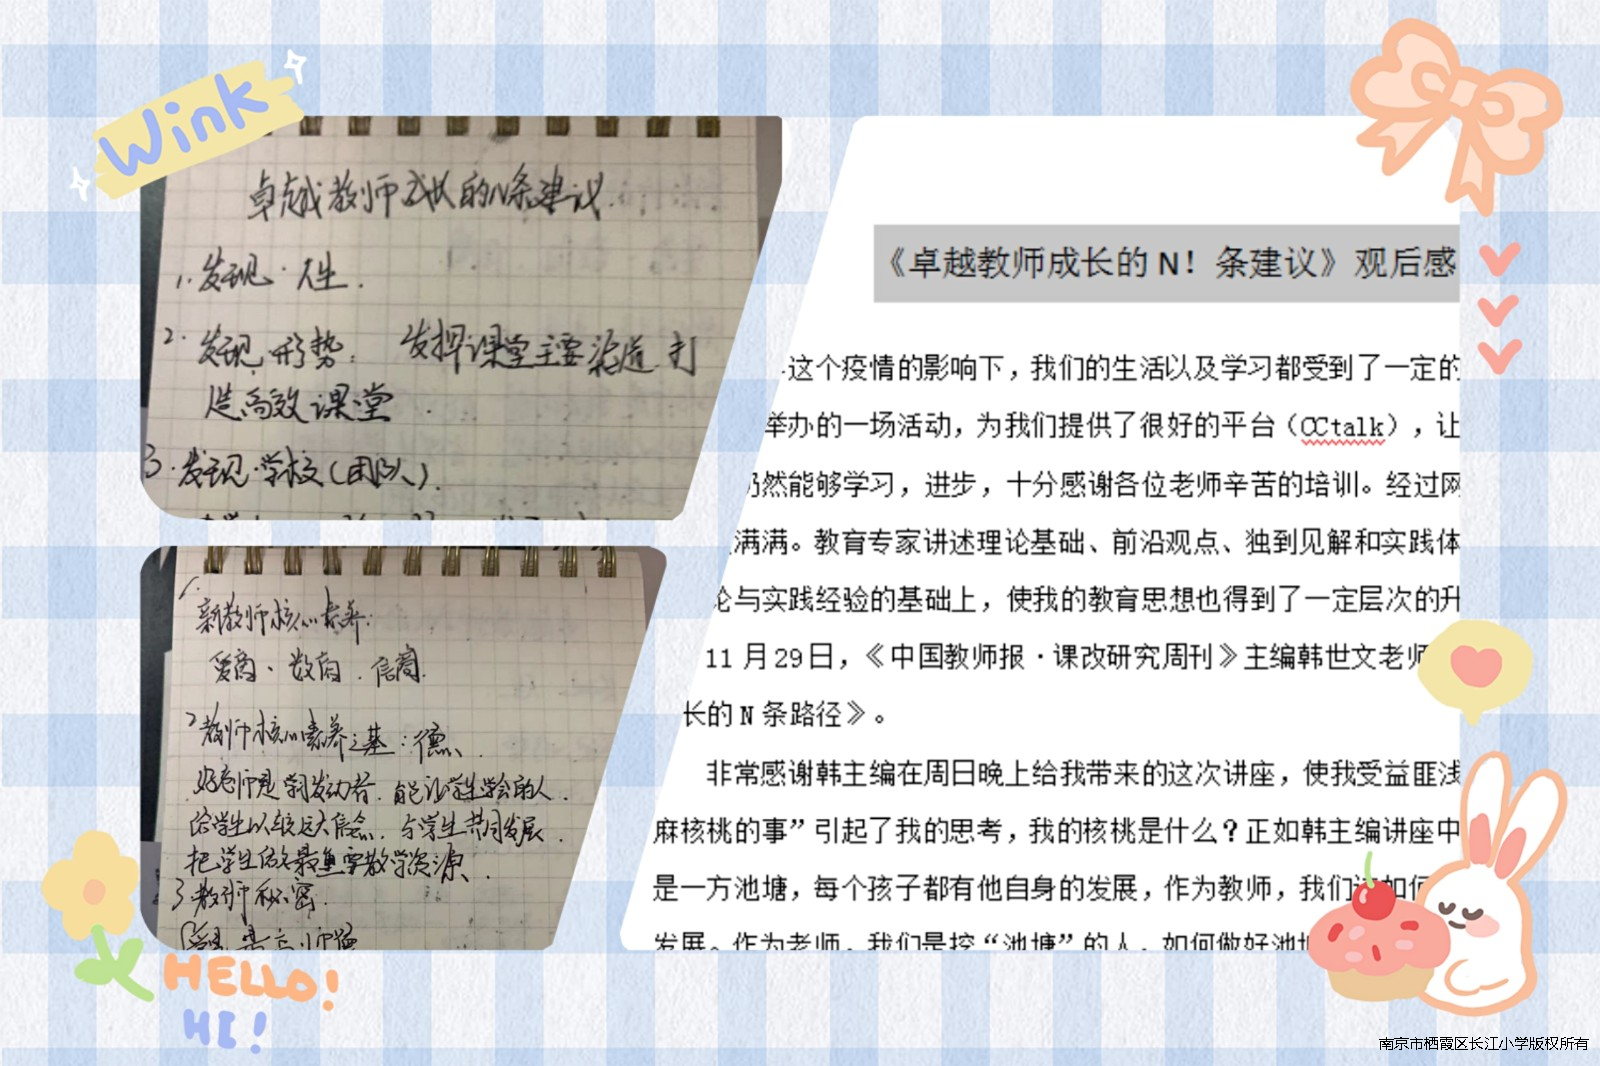 Wink
卓越教师成长的N条建议.
1.发现·人生.
2.发现.形势. 发挥课堂主要渠道.打
造高效课堂
3.发现.学校(团队).
新教师核心素养:
爱商、数商.信商.
2教师核心素养之基:德、
好老师是学习发动者.能让学生学会的人.
给学生以较远大信念.与学生共同发展.
把学生的名最重要教学资源.
3教师秘密.
HELLO!
HI!
《卓越教师成长的N！条建议》观后感
这个疫情的影响下，我们的生活以及学习都受到了一定的
举办的一场活动，为我们提供了很好的平台（CCtalk），让
仍然能够学习，进步，十分感谢各位老师辛苦的培训。经过网
满满。教育专家讲述理论基础、前沿观点、独到见解和实践体
论与实践经验的基础上，使我的教育思想也得到了一定层次的升
11月29日，《中国教师报·课改研究周刊》主编韩世文老师
长的N条路径》。
非常感谢韩主编在周日晚上给我带来的这次讲座，使我受益匪浅
麻核桃的事”引起了我的思考，我的核桃是什么？正如韩主编讲座中
是一方池塘，每个孩子都有他自身的发展，作为教师，我们该如何
发展。作为老师，我们是挖“池塘”的人，如何做好池塘
南京市栖霞区长江小学版权所有